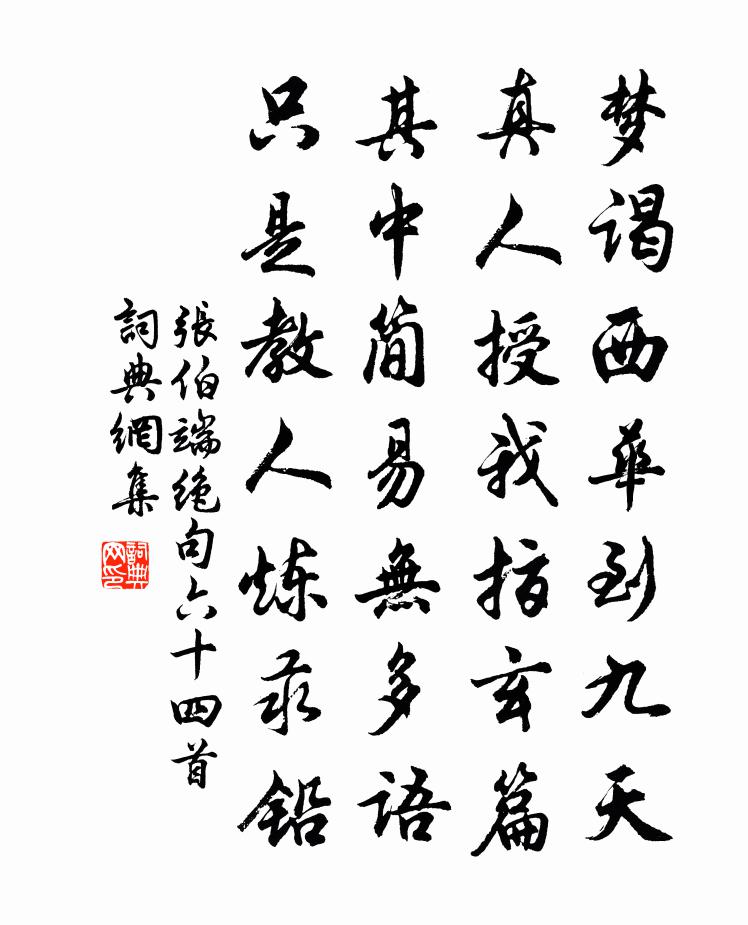 梦谒西华到九天
真人授我指玄篇
其中简易無多語
只是教人炼汞铅
張伯端绝句六十四首
詞典網集
詞典网印